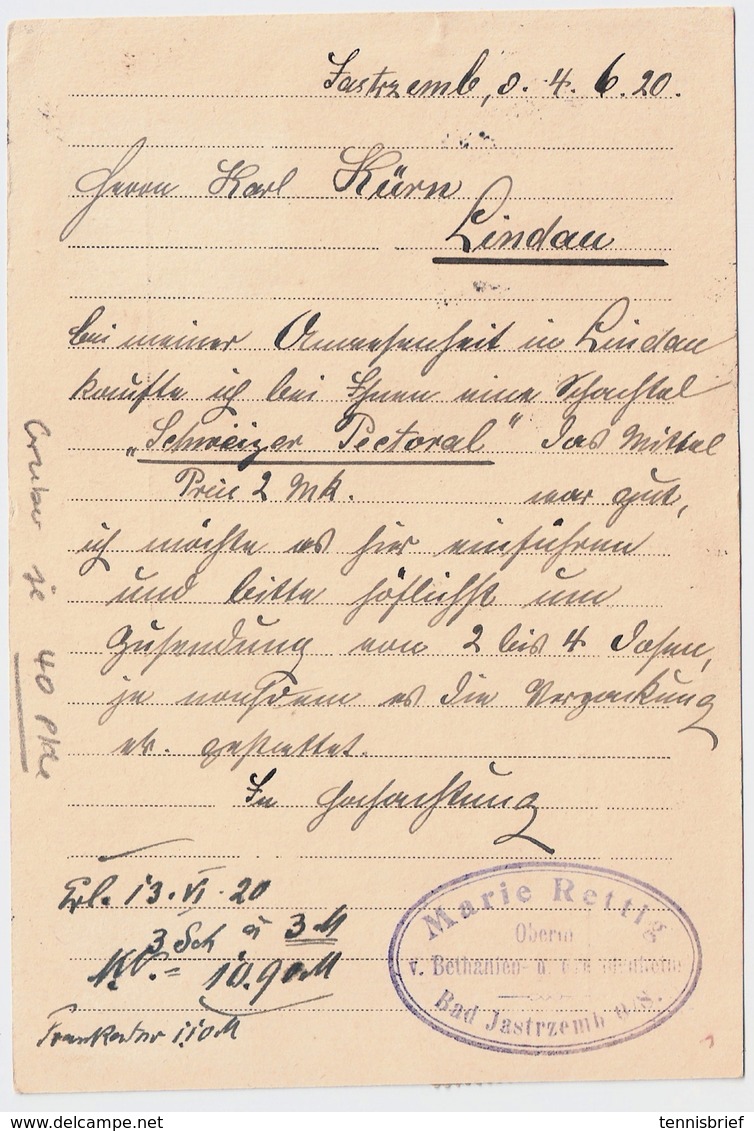 Jastrzemb, d. 4. 6. 20.
Herrn Karl Kürn
Lindau
bei meiner Anwesenheit in Lindau
kaufte ich bei Ihnen eine Schachtel
„Schweizer Pectoral" das Mittel
Preis 2 Mk. war gut,
ich möchte es hier einführen
und bitte höflichst um
Zusendung von 2 bis 4 Dosen,
je nachdem es die Verpackung
etc. gestattet.
In Hochachtung
Erl. 13. VI. 20
3 Sch à 3 M
10.90 M
Frankatur 1.10 M
je 40
Marie Rettig
Oberin
v. Bethanien- u.
Bad Jastrzemb O/S.
tennisbrief